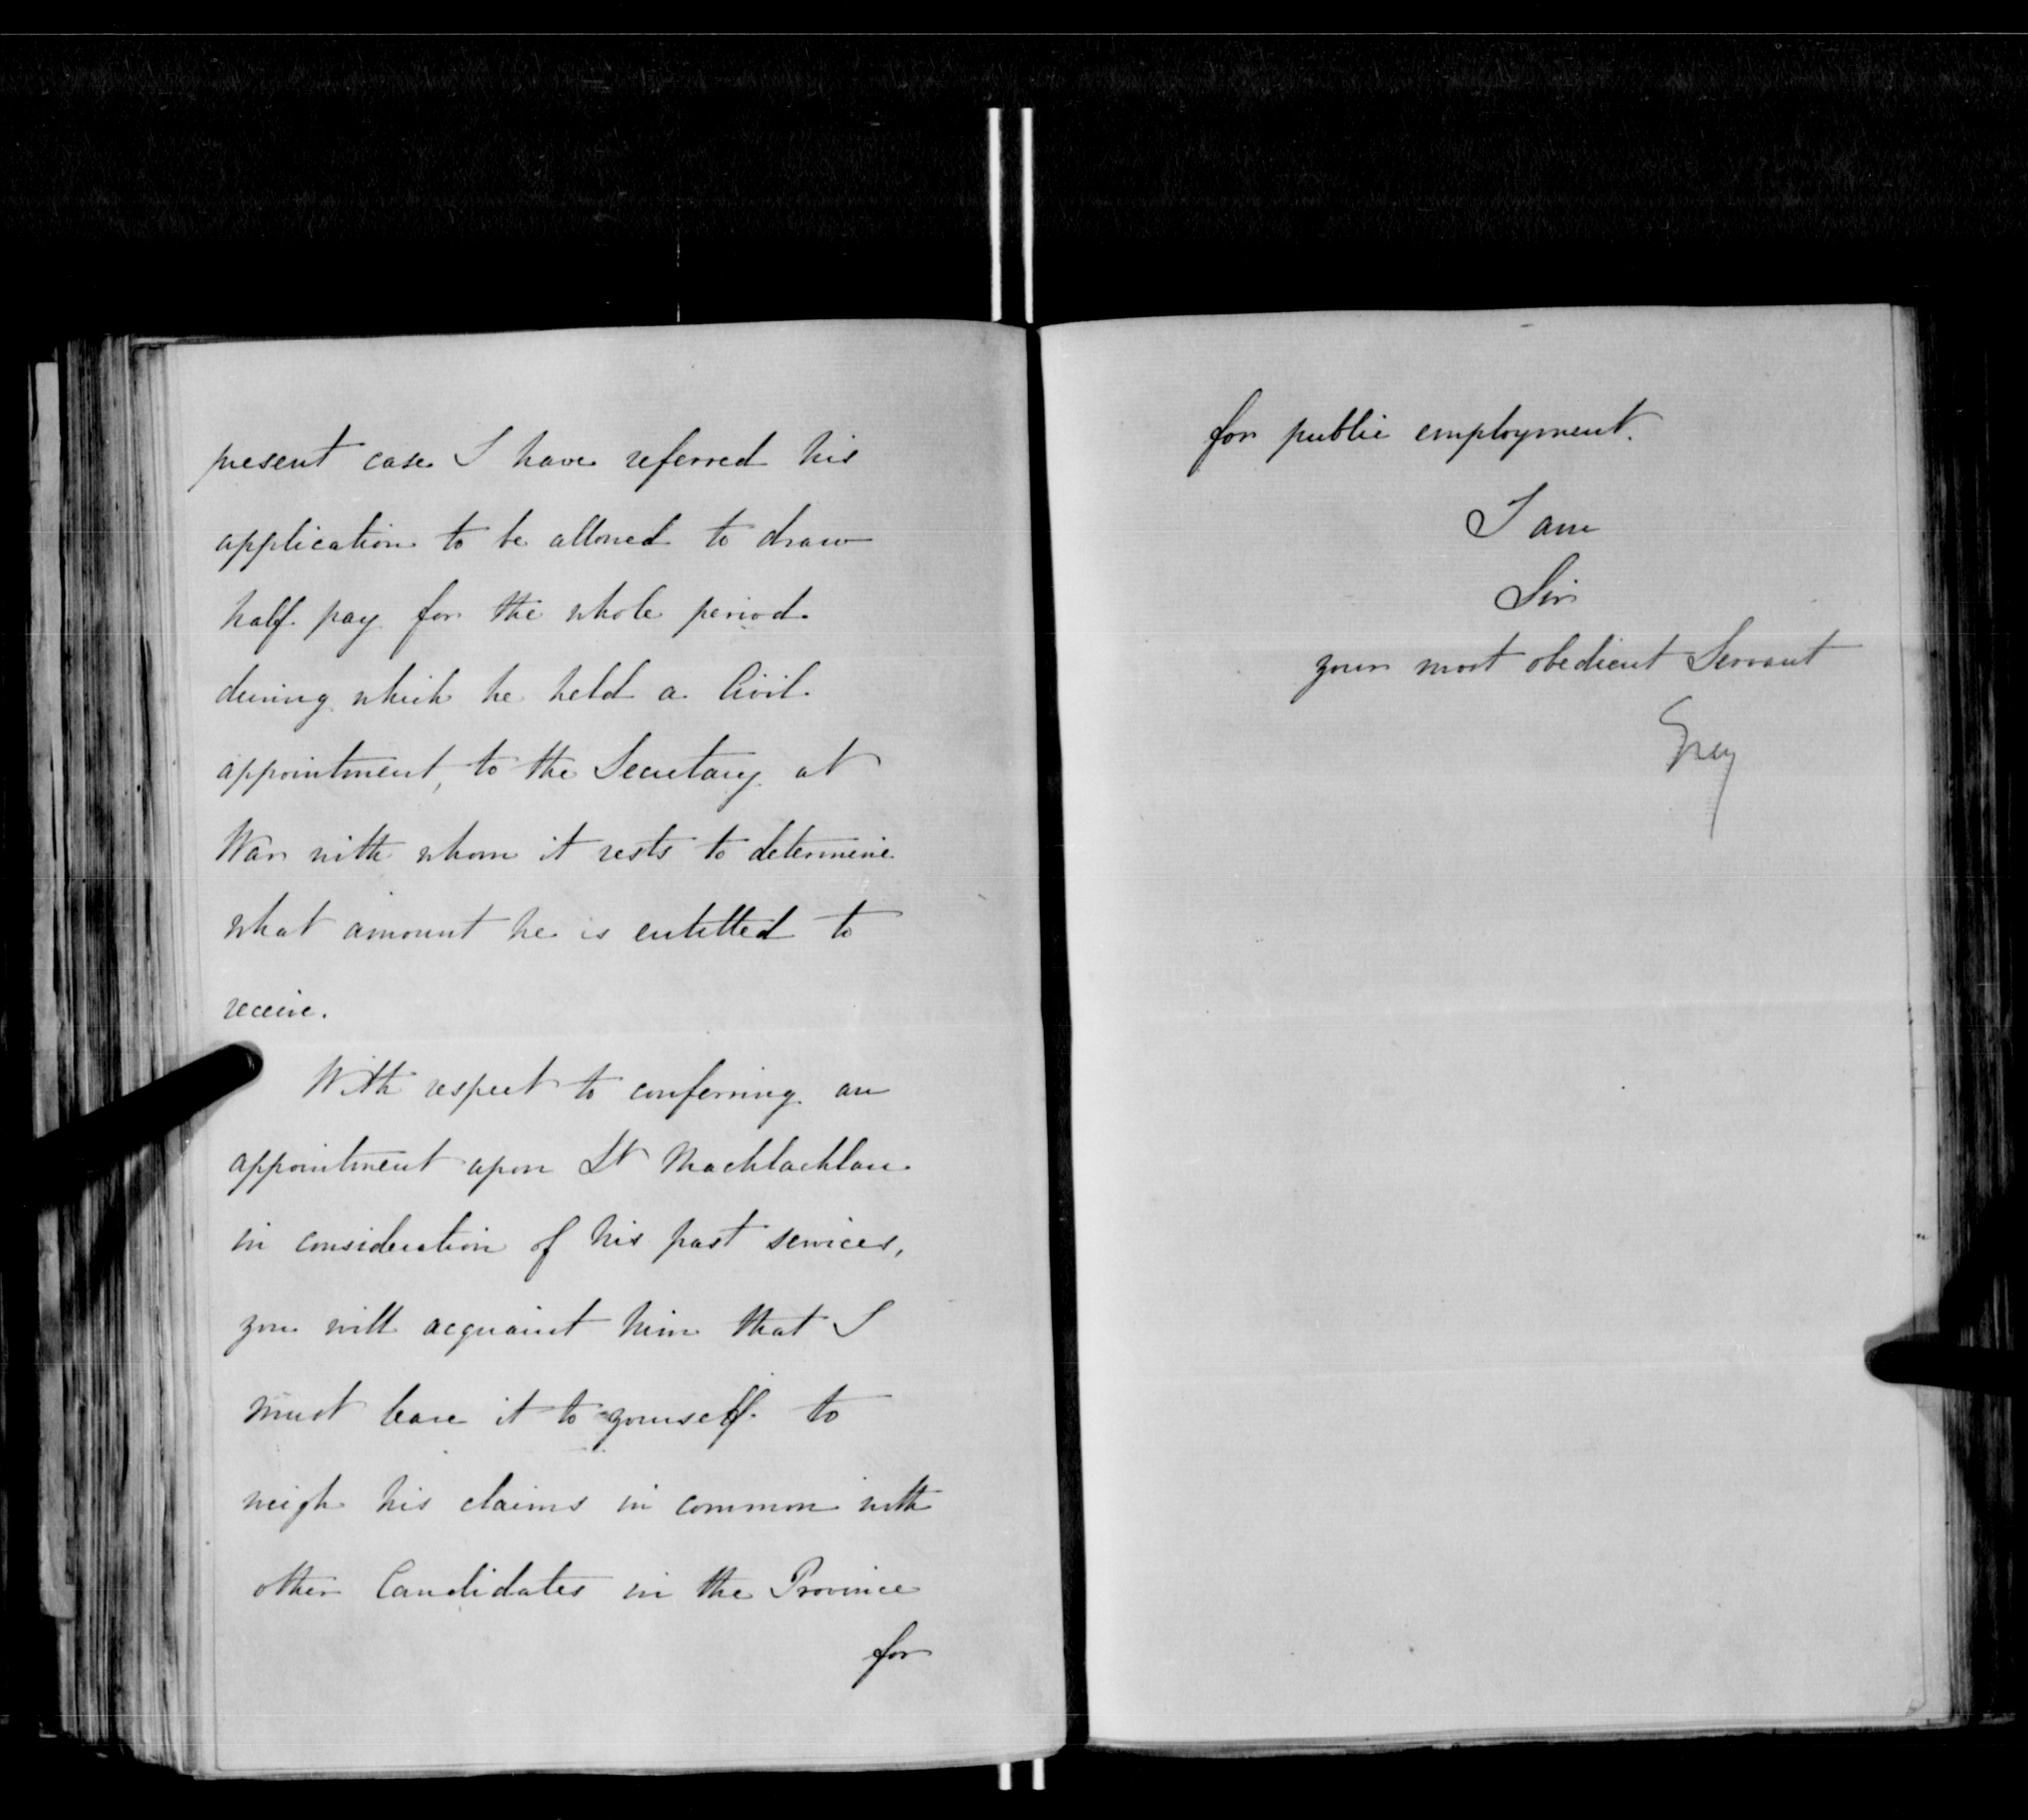 present case I have referred his
application to be allowed to draw
half pay for the whole period
during which he held a Civil
appointment, to the Secretary at
War with whom it rests to determine
what amount he is entitled to
receive.
With respect to conferring an
appointment upon Lt Machlachlan
in consideration of his past services,
you will acquaint him that I
must leave it to yourself to
weigh his claims in common with
other Candidates in the Province
for
for public employment.
I am
Sir
your most obedient Servant
Grey